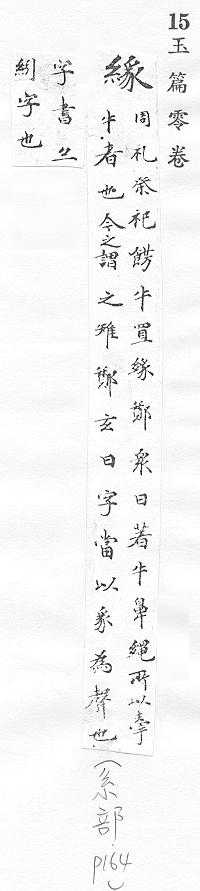 15 玉篇零卷
緣 周礼祭祀飭牛置緣鄭衆曰若牛鼻繩所以牽
牛者也今之謂之雉鄭玄曰字當以豸為聲也（系部 p164）
字書亦
紖字也